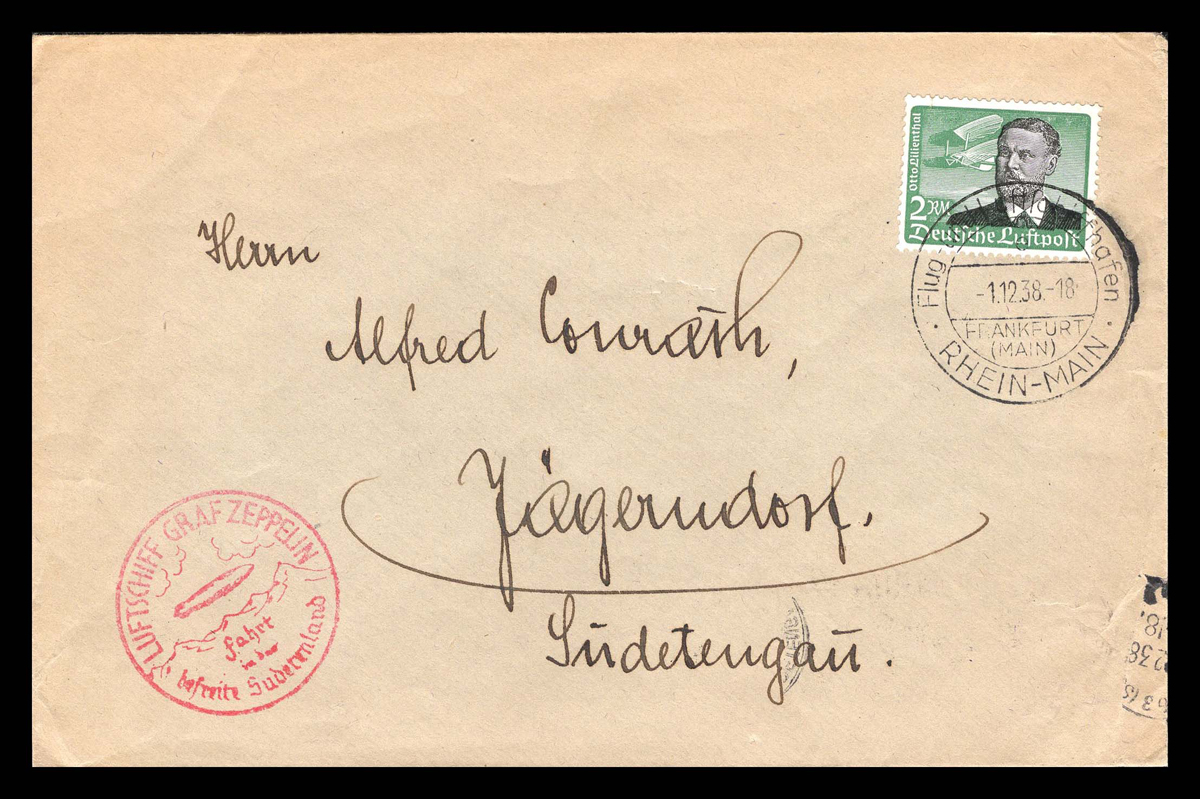 Otto Lilienthal
2 RM
Deutsche Luftpost
Flug- hafen
-1.12.38.-18
FRANKFURT
(MAIN)
RHEIN-MAIN
Herrn
Alfred Conrath,
Jägerndorf.
Sudetengau.
LUFTSCHIFF GRAF ZEPPELIN
Fahrt
in das
befreite Sudetenland